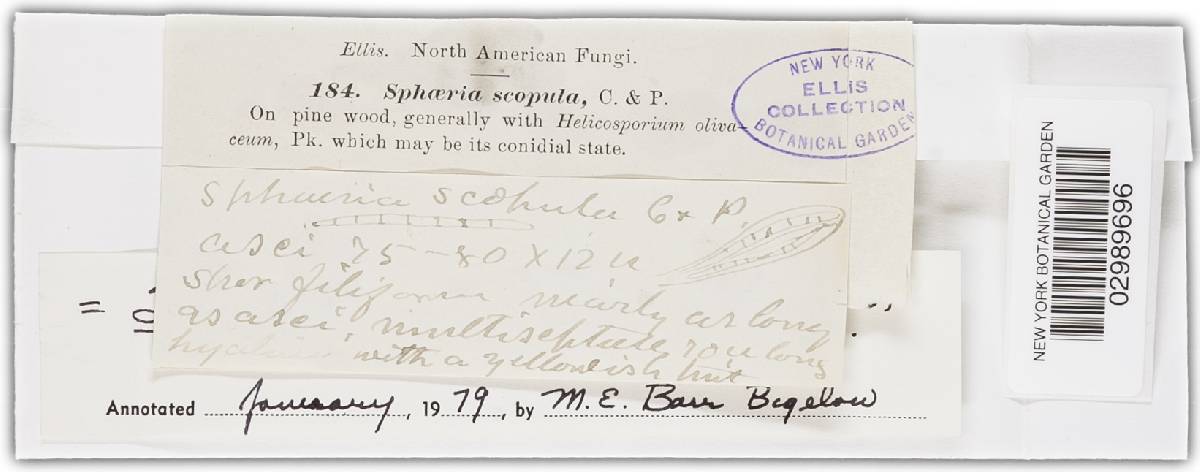 Ellis. North American Fungi.
184. Sphæria scopula, C. & P.
On pine wood, generally with Helicosporium oliva-
ceum, Pk. which may be its conidial state.
NEW YORK
ELLIS
COLLECTION
BOTANICAL GARDEN
Sphaeria scopula C & P.
asci 75-80 X 12 u
Spor filiform nearly as long
as asci, multiseptate 70 u long
hyaline with a yellowish tint
=
10
Annotated January, 1979, by M. E. Barr Bigelow
NEW YORK BOTANICAL GARDEN
02989696